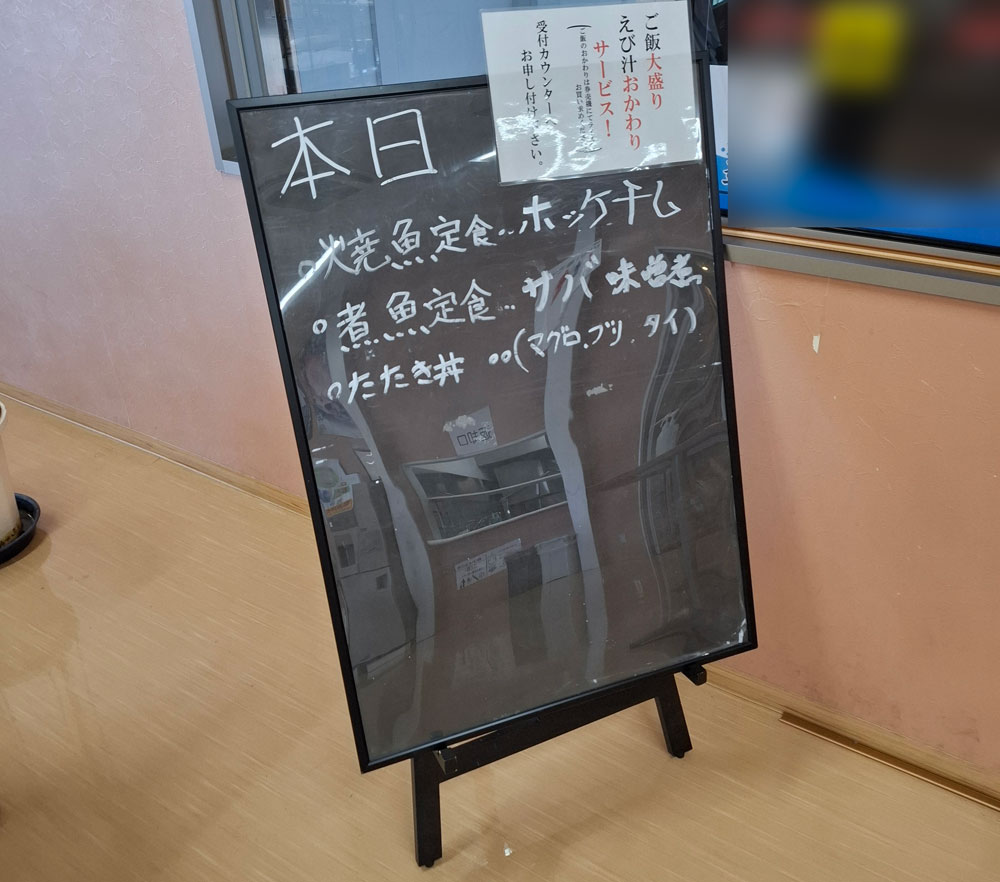 ご飯大盛り
えび汁おかわり
サービス！
受付カウンターへ
お申し付け下さい。
本日
焼魚定食‥ホッケ干し
煮魚定食‥サバ味噌煮
たたき丼 ‥(マグロ、ブリ、タイ)